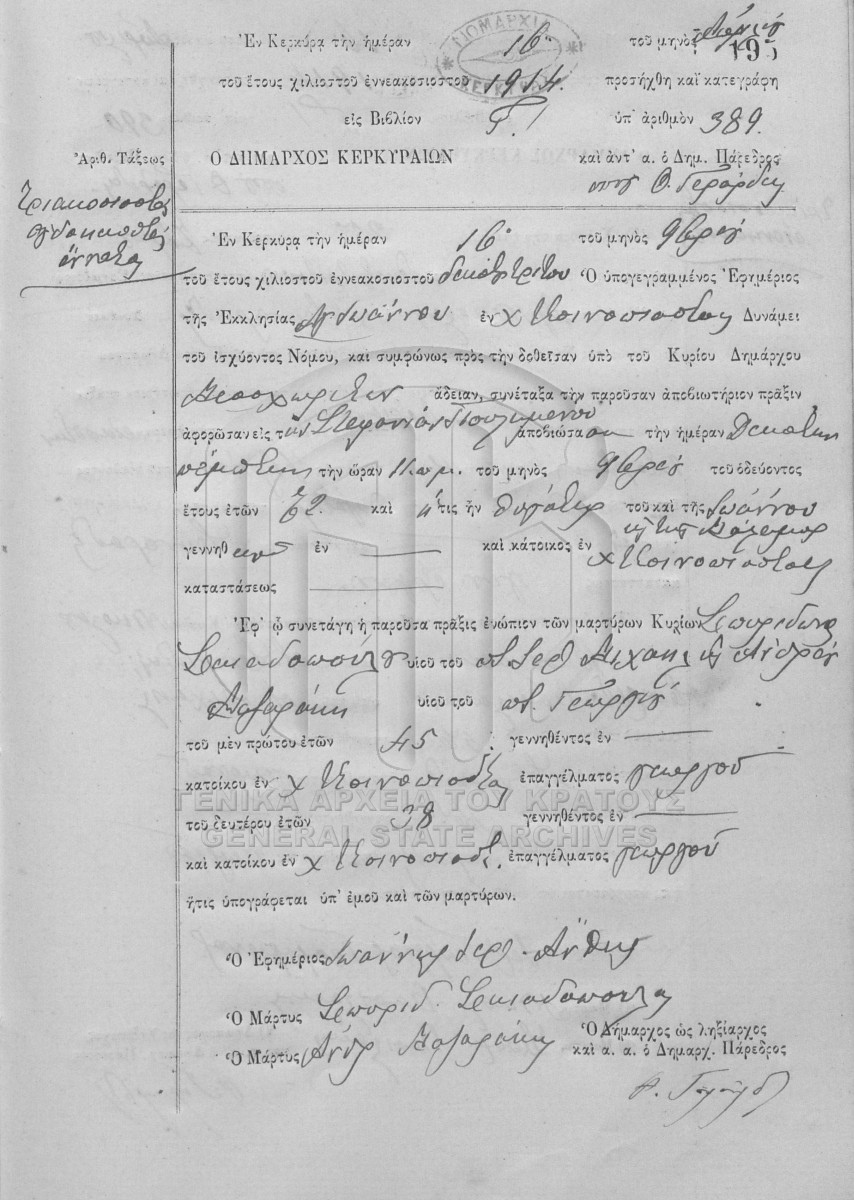 Ἐν Κερκύρᾳ τὴν ἡμέραν 16 τοῦ μηνὸς
ΝΟΜΑΡΧΙΑ
195
τοῦ ἔτους χιλιοστοῦ ἐννεακοσιοστοῦ 1914. προσήχθη καὶ κατεγράφη
εἰς Βιβλίον Γ. ὑπ' ἀριθμὸν 389.
Ἀριθ. Τάξεως
Ὁ ΔΗΜΑΡΧΟΣ ΚΕΡΚΥΡΑΙΩΝ καὶ ἀντ' α. ὁ Δημ. Πάρεδρος
τριακοσιοστὴ
ὀγδοηκοστὴ
ἐννάτη
Ἐν Κερκύρᾳ τὴν ἡμέραν 16 τοῦ μηνὸς 9βρίου
τοῦ ἔτους χιλιοστοῦ ἐννεακοσιοστοῦ δεκάτου τρίτου Ὁ ὑπογεγραμμένος Ἐφημέριος
τῆς Ἐκκλησίας Ἁγ Ἰωάννου ἐν χ Κοινοπιάστας Δυνάμει
τοῦ ἰσχύοντος Νόμου, καὶ συμφώνως πρὸς τὴν δοθεῖσαν ὑπὸ τοῦ Κυρίου Δημάρχου
Μεσοχωριτῶν ἄδειαν, συνέταξα τὴν παροῦσαν ἀποβιωτήριον πρᾶξιν
ἀφορῶσαν εἰς τὴν Στεφανίαν ἀποβιώσασαν τὴν ἡμέραν Δεκάτην
πέμπτην τὴν ὥραν 11 π.μ. τοῦ μηνὸς 9βρίου τοῦ ὁδεύοντος
ἔτους ἐτῶν 72 καὶ ἥτις ἦν θυγάτηρ τοῦ καὶ τῆς Ἰωάννου
καὶ τῆς
γεννηθ ἐν — καὶ κάτοικος ἐν χ Κοινοπιάστας
καταστάσεως —
Ἐφ' ᾧ συνετάγη ἡ παροῦσα πρᾶξις ἐνώπιον τῶν μαρτύρων Κυρίων Σπυρίδωνος
Σκιαδοπούλου υἱοῦ τοῦ π. Ἱερ Μιχαὴλ καὶ Ἀνδρέου
υἱοῦ τοῦ π. Γεωργίου
τοῦ μὲν πρώτου ἐτῶν 45 γεννηθέντος ἐν —
κατοίκου ἐν χ Κοινοπιάστας ἐπαγγέλματος γεωργοῦ
ΓΕΝΙΚΑ ΑΡΧΕΙΑ ΤΟΥ ΚΡΑΤΟΥΣ
τοῦ δευτέρου ἐτῶν 38 γεννηθέντος ἐν —
GENERAL STATE ARCHIVES
καὶ κατοίκου ἐν χ Κοινοπιάστ. ἐπαγγέλματος γεωργοῦ
ἥτις ὑπογράφεται ὑπ' ἐμοῦ καὶ τῶν μαρτύρων.
Ὁ Ἐφημέριος Ἰωάννης ἱερ. Ἄνθης
Ὁ Μάρτυς Σπυρίδ. Σκιαδόπουλος
Ὁ Μάρτυς Ἀνδρ
Ὁ Δήμαρχος ὡς ληξίαρχος
καὶ α. α. ὁ Δημαρχ. Πάρεδρος